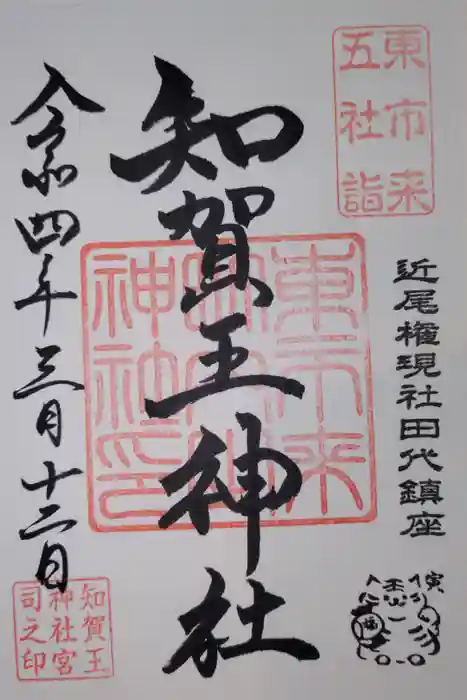 東市来
五社詣
近尾権現社田代鎮座
寅
知賀王神社
令和四年三月十二日
知賀王
神社宮
司之印